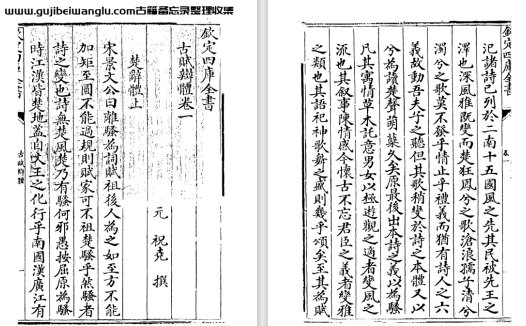 www.gujibeiwanglu.com古籍备忘录整理收集
欽定四庫全書
古賦辯體卷一
元 祝堯 撰
楚辭體上
宋景文公曰離騷為詞賦祖後人為之如至方不能
加矩至圓不能過規則賦家可不祖楚騷乎然騷者
詩之變也詩無楚風楚乃有騷何邪愚按屈原為騷
時江漢皆楚地蓋自文王之化行乎南國漢廣江有
古賦辯體
欽定四庫全書
卷一
汜諸詩已列於二南十五國風之先其民被先王之
澤也深風雅既變而楚狂鳳兮之歌滄浪孺子清兮
濁兮之歌莫不發乎情止乎禮義而猶有詩人之六
義故動吾夫子之聽但其歌稍變於詩之本體又以
兮為讀楚聲萌蘖久矣原最後出本詩之義以為騷
凡其寓情草木託意男女以極遊觀之適者變風之
流也其叙事陳情感今懷古不忘君臣之義者變雅
之類也其語祀神歌舞之盛則幾乎頌矣至其為賦